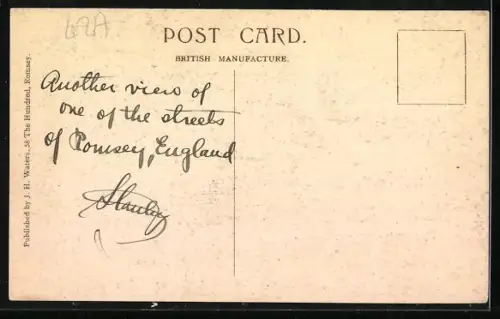 69A
POST CARD.
BRITISH MANUFACTURE.
Another view of
one of the streets
of Romsey, England
Stanley
Published by J. H. Waters, 58 The Hundred, Romsey.